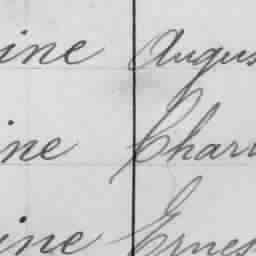 ine Augus
ine Char
ine Ernes